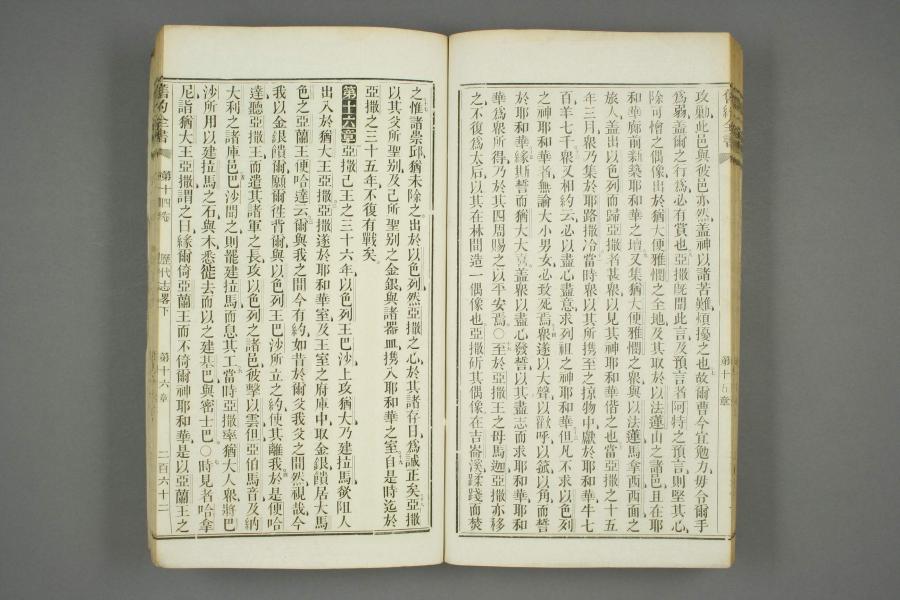 攻動此邑與彼邑亦然蓋神以諸苦難煩擾之也故爾曹今宜勉力毋令爾手
爲弱蓋爾之行爲必有賞也亞撒旣聞此言及預言者阿特之預言則堅其心
除可憎之偶像出於猶大便雅憫之全地及其取於以法蓮山之諸邑且在耶
和華廊前新築耶和華之壇又集猶大便雅憫之衆與以法蓮馬拿西西面之
旅人蓋出以色列而歸亞撒者甚衆以見其神耶和華偕之也當亞撒之十五
年三月衆乃集於耶路撒冷當時衆以其所攜至之掠物中獻於耶和華牛七
百羊七千衆又相約云必以盡心盡意求列祖之神耶和華但凡不求以色列
之神耶和華者無論大小男女必致死焉衆遂以大聲以歡呼以號以角而誓
於耶和華緣斯誓而猶大大喜蓋衆以盡心發誓以其盡志而求耶和華耶和
華爲衆所得乃於其四周賜之以平安焉○至於亞撒王之母馬迦亞撒亦移
之不復爲太后以其在林間造一偶像也亞撒斫其偶像在吉崙溪蹂踐而焚
第十五章
之惟諸崇邱猶未除之出於以色列然亞撒之心於其諸存日爲誠正矣亞撒
以其父所聖别及己所聖别之金銀與諸器皿攜入耶和華之室自是時迄於
亞撒之三十五年不復有戰矣
第十六章亞撒己王之三十六年以色列王巴沙上攻猶大乃建拉馬欲阻人
出入於猶大王亞撒亞撒遂於耶和華室及王室之府庫中取金銀饋居大馬
色之亞蘭王便哈達云爾與我之間今有約如昔於爾父我父之間然視哉今
我以金銀饋爾願爾往背爾與以色列王巴沙所立之約使其離我於是便哈
達聽亞撒王而遣其諸軍之長攻以色列之諸邑彼擊以雲但亞伯馬音及納
大利之諸庫邑巴沙聞之則罷建拉馬而息其工當時亞撒率猶大人衆將巴
沙所用以建拉馬之石與木悉徙去而以之建基巴與密士巴○時見者哈拿
尼詣猶大王亞撒謂之曰緣爾倚亞蘭王而不倚爾神耶和華是以亞蘭王之
舊約全書 第十四卷 歷代志畧下 第十六章 二百六十二